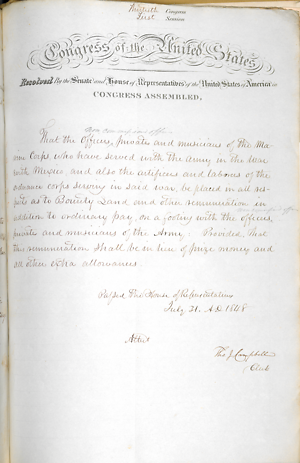 Thirtieth Congress
First Session
Congress of the United States
Resolved By the Senate and House of Representatives of the United States of America in
CONGRESS ASSEMBLED,
non commissioned officers
That the Officers, privates and musicians of the Ma
rine Corps who have served with the Army in the War
with Mexico, and also the artificers and laborers of the
ordnance corps serving in said war, be placed in all re-
spects as to Bounty Land and other remuneration in
non commissioned officers
addition to ordinary pay, on a footing with the officers,
privates and musicians of the Army. Provided, that
this remuneration shall be in lieu of prize money and
all other extra allowances.
Passed the House of Representatives
July 21. A.D. 1848
Attest
Tho. J. Campbell
Clerk